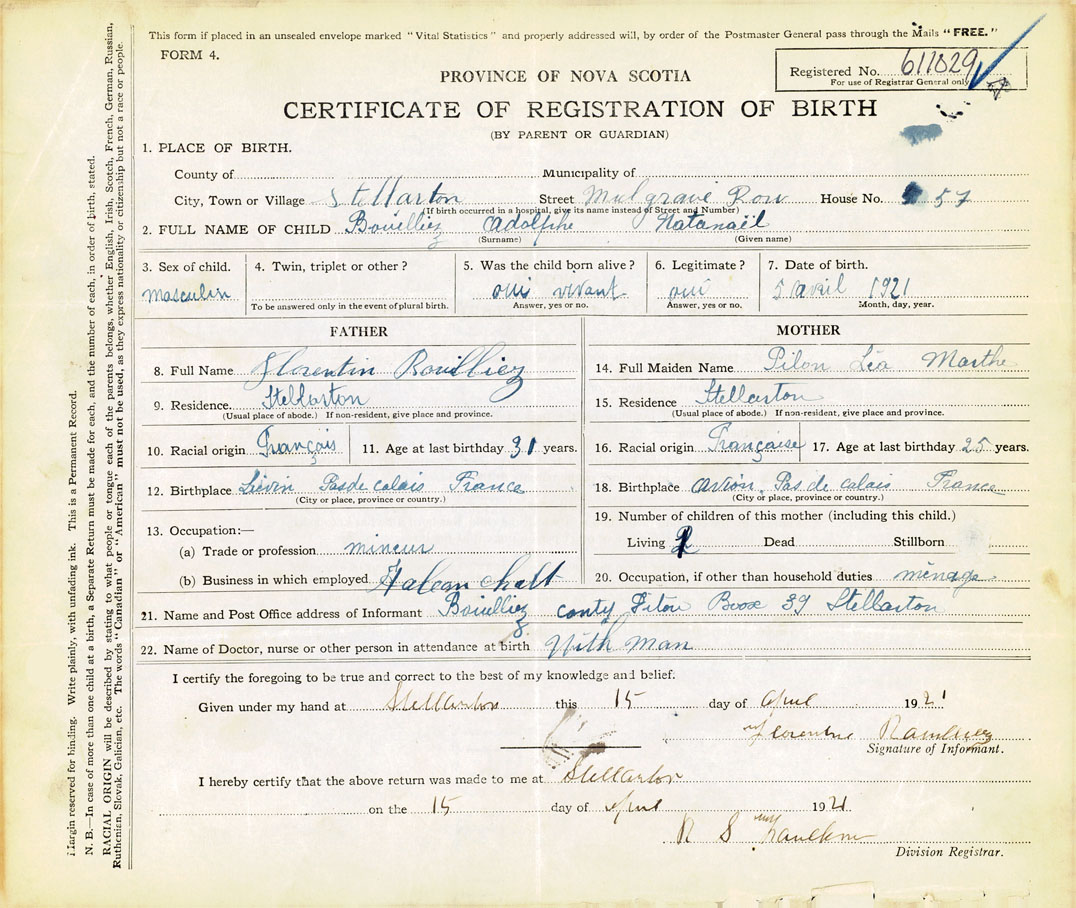 This form if placed in an unsealed envelope marked "Vital Statistics" and properly addressed will, by order of the Postmaster General pass through the Mails "FREE."
FORM 4.
Registered No. 611029
For use of Registrar General only
PROVINCE OF NOVA SCOTIA
CERTIFICATE OF REGISTRATION OF BIRTH
(BY PARENT OR GUARDIAN)
1. PLACE OF BIRTH.
County of Municipality of
City, Town or Village Stellarton Street Mulgrave Row House No. 57
(If birth occurred in a hospital, give its name instead of Street and Number)
2. FULL NAME OF CHILD Bouilliez Adolphe Natanaël
(Surname) (Given name)
3. Sex of child. 4. Twin, triplet or other? 5. Was the child born alive? 6. Legitimate? 7. Date of birth.
Masculin oui vivant oui 5 avril 1921
To be answered only in the event of plural birth. Answer, yes or no. Answer, yes or no. Month, day, year.
FATHER
8. Full Name Florentin Bouilliez
9. Residence Stellarton
(Usual place of abode.) If non-resident, give place and province.
10. Racial origin Français 11. Age at last birthday 31 years.
12. Birthplace Liévin Pas de calais France
(City or place, province or country.)
13. Occupation:—
(a) Trade or profession mineur
(b) Business in which employed
MOTHER
14. Full Maiden Name Pilon Léa Marthe
15. Residence Stellarton
(Usual place of abode.) If non-resident, give place and province.
16. Racial origin Française 17. Age at last birthday 25 years.
18. Birthplace Avion, Pas de calais France
(City or place, province or country.)
19. Number of children of this mother (including this child.)
Living 2 Dead Stillborn
20. Occupation, if other than household duties ménage
21. Name and Post Office address of Informant Bouilliez conty Pitou Boox 39 Stellarton
22. Name of Doctor, nurse or other person in attendance at birth With man
I certify the foregoing to be true and correct to the best of my knowledge and belief.
Given under my hand at Stellarton this 15 day of April 1921
Signature of Informant.
I hereby certify that the above return was made to me at Stellarton
on the 15 day of April 1921
Division Registrar.
Margin reserved for binding. Write plainly, with unfading ink. This is a Permanent Record.
N. B.—In case of more than one child at a birth, a Separate Return must be made for each, and the number of each, in order of birth, stated.
RACIAL ORIGIN will be described by stating to what people or tongue each of the parents belongs, whether English, Irish, Scotch, French, German, Russian,
Ruthenian, Slovak, Galician, etc. The words "Canadian" or "American" must not be used, as they express nationality or citizenship but not a race or people.